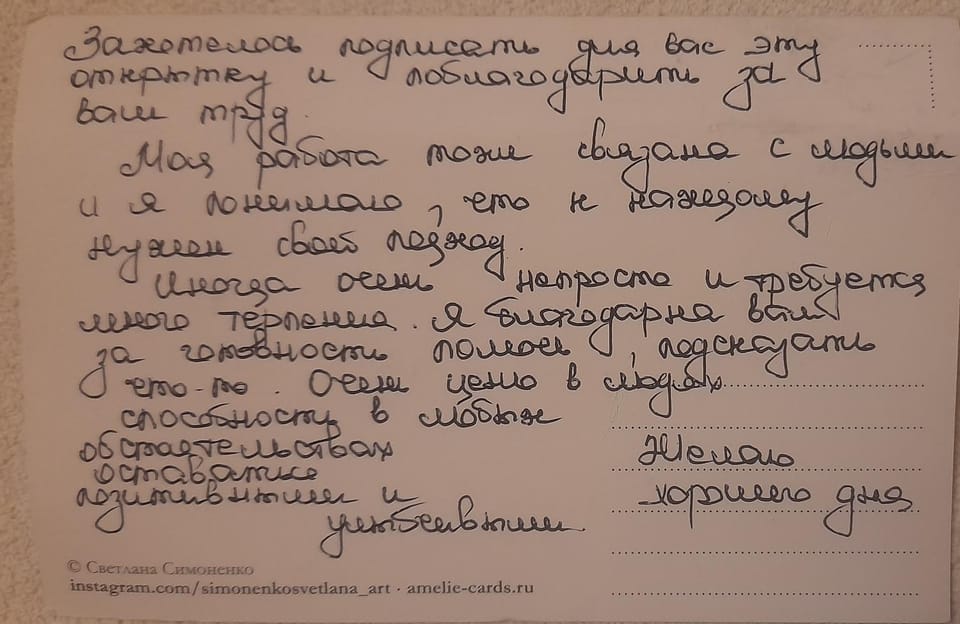 Захотелось подписать для вас эту
открытку и поблагодарить за
ваш труд.
Моя работа тоже связана с людьми
и я понимаю, что к каждому
нужен свой подход.
Иногда очень непросто и требуется
много терпения. Я благодарна вам
за готовность помочь, подсказать
что-то. Очень ценю в людях
способность в любых
обстоятельствах
оставаться
позитивными и
улыбчивыми.
Желаю
хорошего дня
© Светлана Симоненко
instagram.com/simonenkosvetlana_art · amelie-cards.ru